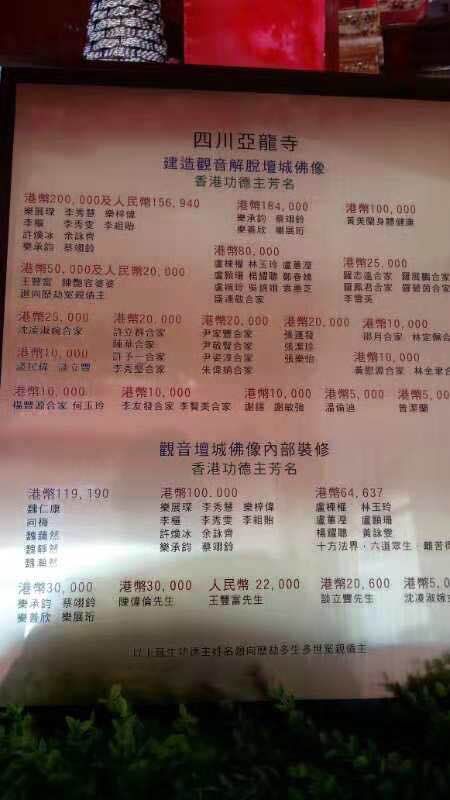 四川亞龍寺
建造觀音解脫壇城佛像
香港功德主芳名
港幣200,000及人民幣156,940
樂展琛 李秀慧 樂梓偉
李樞 李秀雯 李祖貽
許煥冰 余詠齊
樂承鈞 蔡翊鈴
港幣184,000
樂承鈞 蔡翊鈴
樂善欣 樂展珩
港幣100,000
黃美蘭身體健康
港幣50,000及人民幣20,000
王豐富 陳艷容婆婆
迴向歷劫冤親債主
港幣80,000
盧棟權 林玉玲 盧蕙瀅
盧顥珊 楊耀聰
羅連敬合家
港幣25,000
羅志遠合家 羅展鵬合家
羅鳳君合家 羅碧茵合家
李雪英
港幣25,000
沈凌淑婉合家
港幣10,000
談民偉 談立豐
港幣20,000
許立群合家
陳華合家
許予一合家
李秀堅合家
港幣20,000
尹家豐合家
尹敬賢合家
尹姿淳合家
朱偉炳合家
港幣20,000
張蓮發
張潔珍
張樂怡
港幣10,000
鄒月合家 林定佩合
港幣10,000
黃慰源合家 林全聿合
港幣10,000
楊豐源合家 何玉玲
港幣10,000
李友發合家 李賢美合家
港幣10,000
謝鏘 謝敏強
港幣5,000
溫倫迪
港幣5,00
曾潔蘭
觀音壇城佛像內部裝修
香港功德主芳名
港幣119,190
魏仁康
向梅
魏藹然
魏靜然
魏瀚然
港幣100,000
樂展琛 李秀慧 樂梓偉
李樞 李秀雯 李祖貽
許煥冰 余詠齊
樂承鈞 蔡翊鈴
港幣64,637
盧棟權 林玉玲
盧蕙瀅 盧顥珊
楊耀聰 黃詠雯
十方法界，六道眾生，離苦得
港幣30,000
樂承鈞 蔡翊鈴
樂善欣 樂展珩
港幣30,000
陳偉倫先生
人民幣 22,000
王豐富先生
港幣20,600
談立豐先生
港幣5,0
沈凌淑婉
以上眾生功德主姓名迴向歷劫多生多世冤親債主